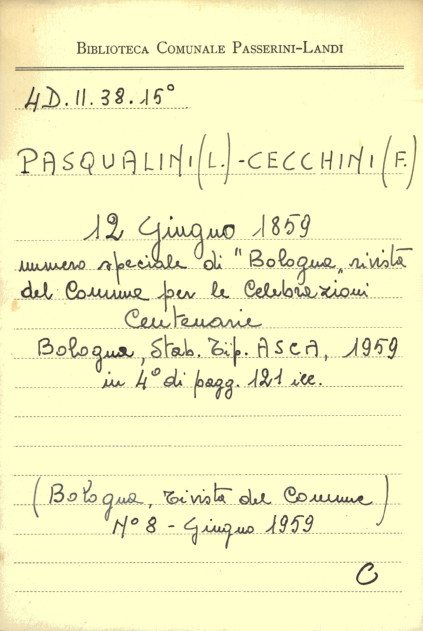 BIBLIOTECA COMUNALE PASSERINI-LANDI
4D.II.38.15°
PASQUALINI (L.) - CECCHINI (F.)
12 Giugno 1859
numero speciale di "Bologna„ rivista
del Comune per le Celebrazioni
Centenarie
Bologna, Stab. Tip. ASCA, 1959
in 4° di pagg. 121 ill.
(Bologna, rivista del Comune)
N° 8 - Giugno 1959
C